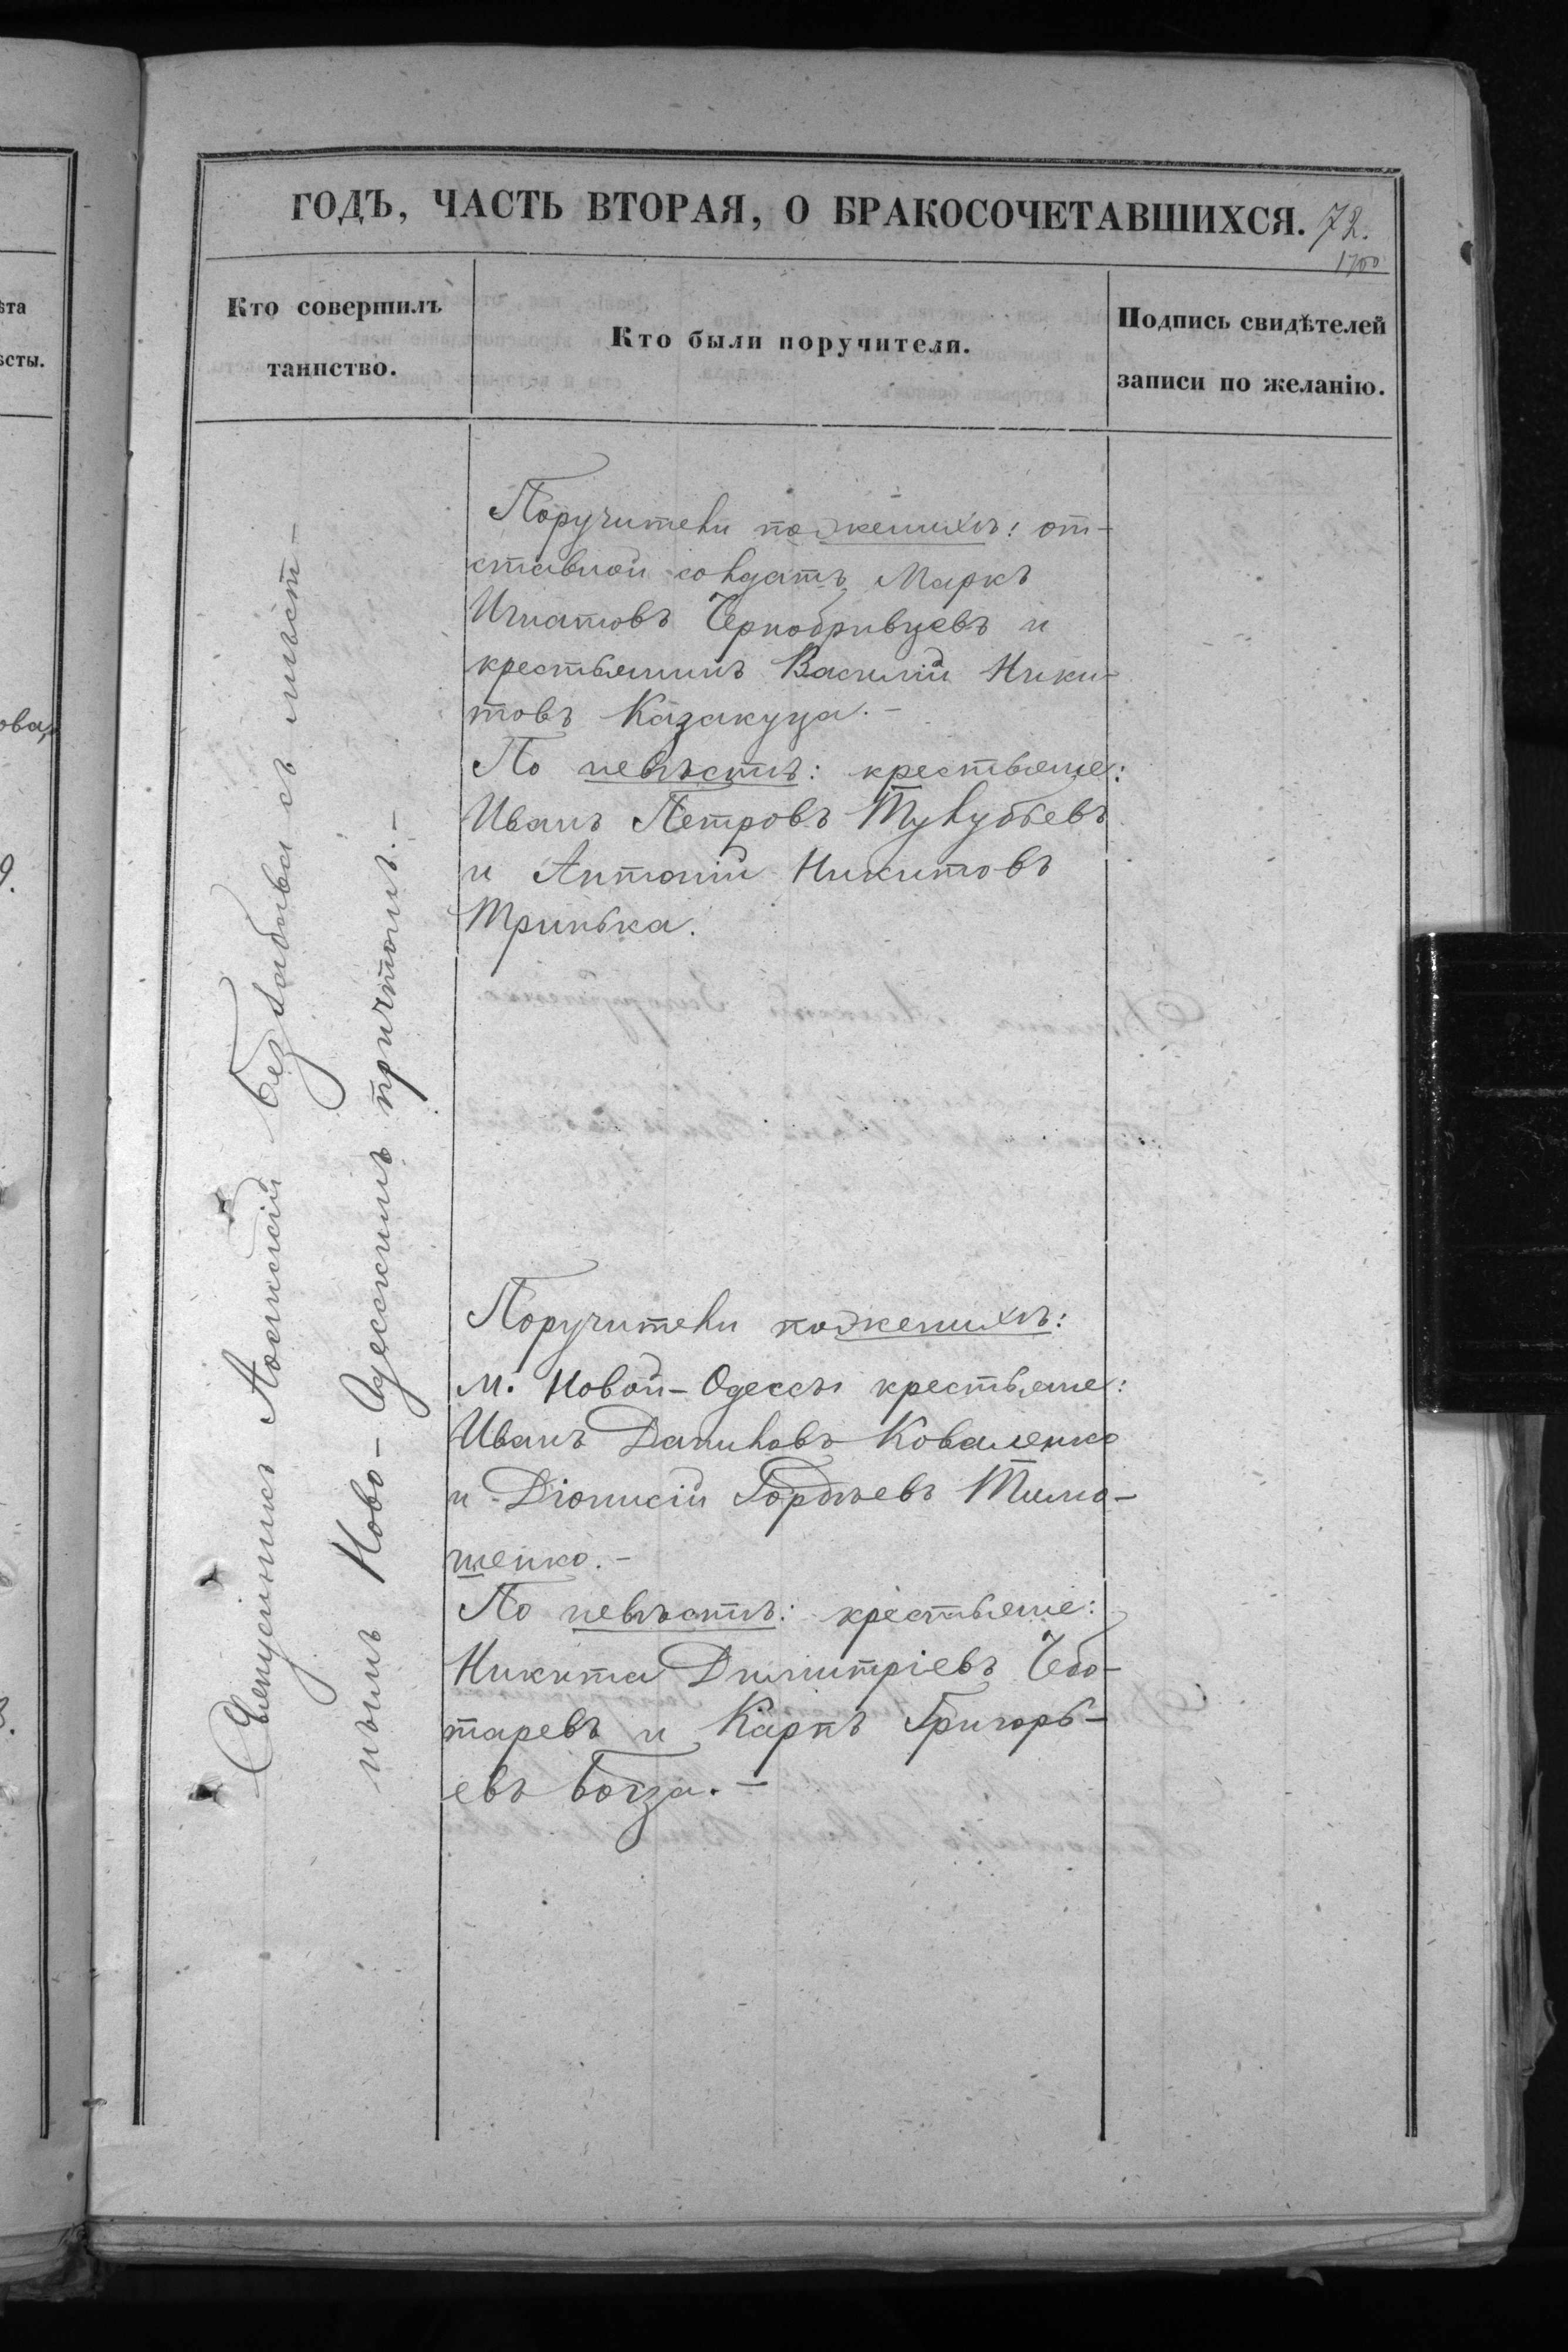 ГОДЪ, ЧАСТЬ ВТОРАЯ, О БРАКОСОЧЕТАВШИХСЯ. 72.
Кто совершилъ
таинство.
Кто были поручители.
Подпись свидѣтелей
записи по желанію.
Священникъ Іоаннікій Безбабва съ мѣст-
нымъ Ново-Одесскимъ причтомъ.-
Поручители по женихѣ: от-
ставной солдатъ Маркъ
Игнатовъ Чернобривцевъ и
крестьянинъ Василій Ники-
товъ Казакуца.-
По невѣстѣ: крестьяне:
Иванъ Петровъ Тулубьевъ
и Антоній Никитовъ
Тринька.
Поручители по женихѣ:
М. Новой-Одессы крестьяне:
Иванъ Даниловъ Коваленко
и Діонисій Гордѣевъ Тимо-
шенко.-
По невѣстѣ: крестьяне:
Никита Димитріевъ Чебо-
таревъ и Карпъ Григорь-
евъ Богза.-